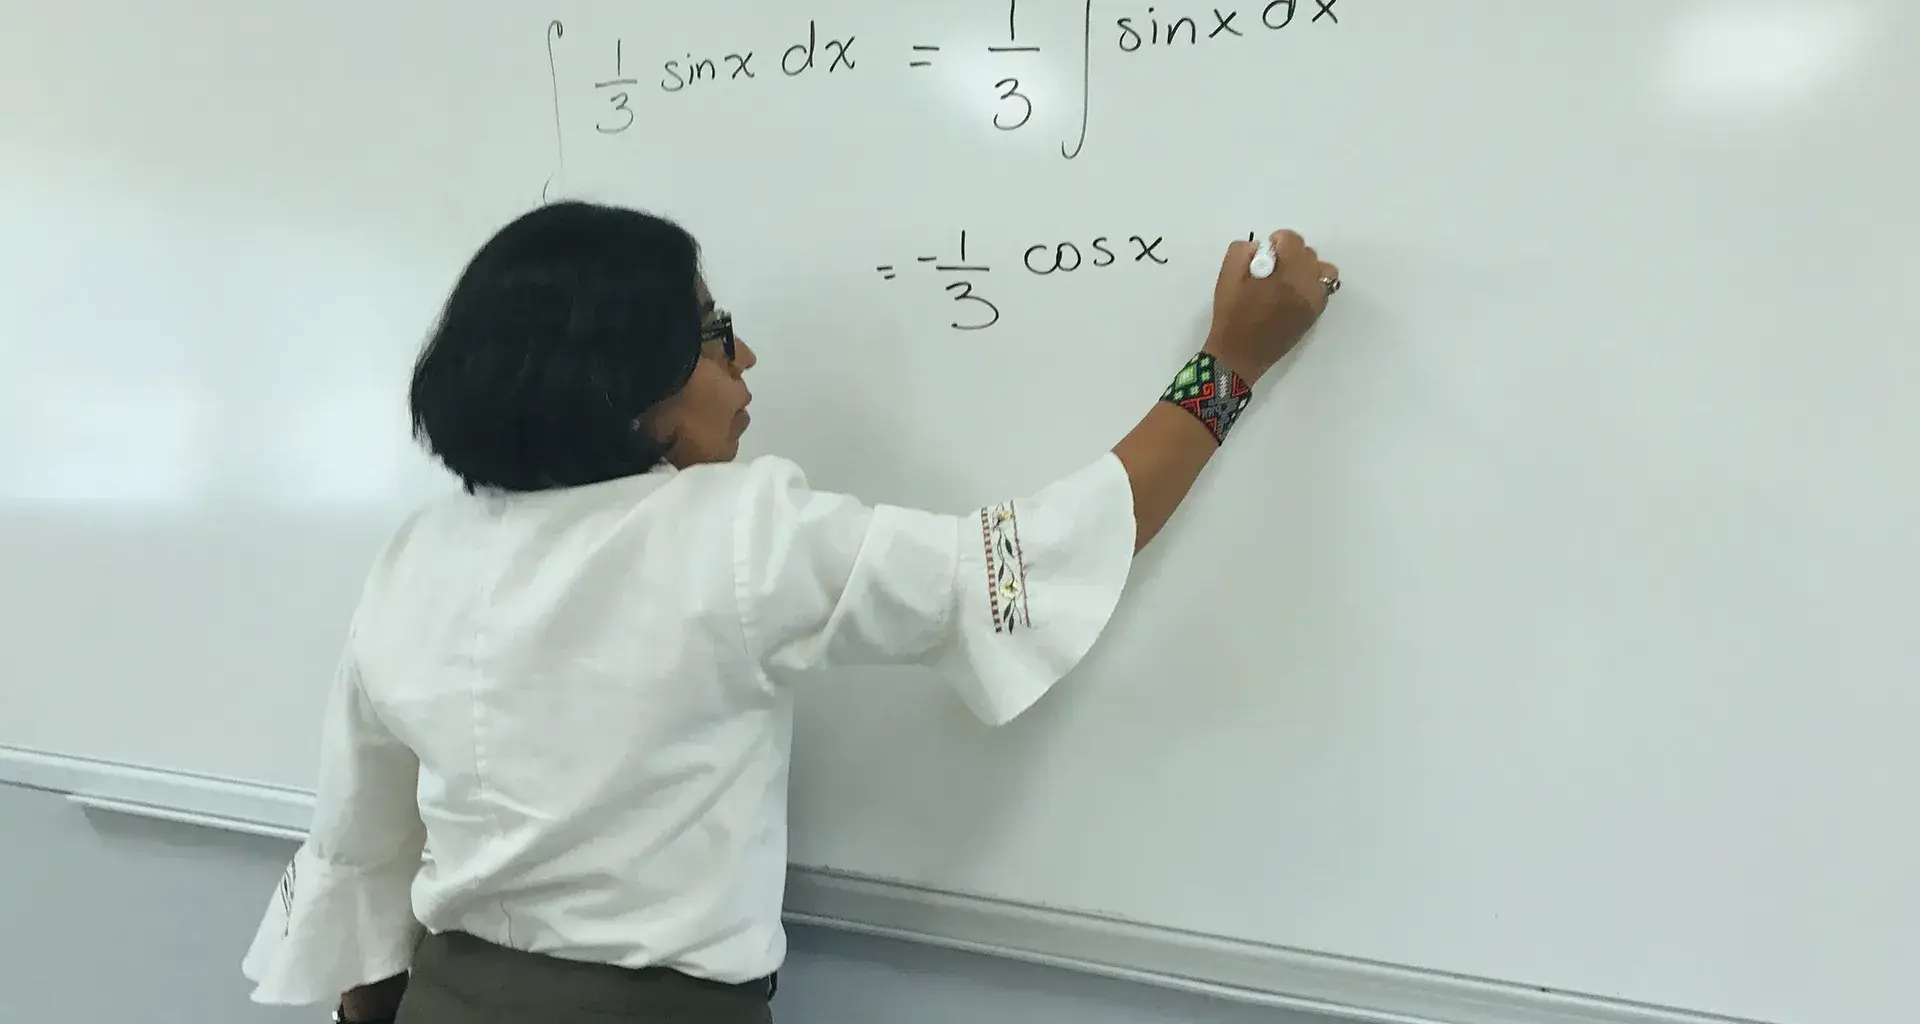 ∫ 1/3 sin x dx = 1/3 ∫ sin x dx
= -1/3 cos x